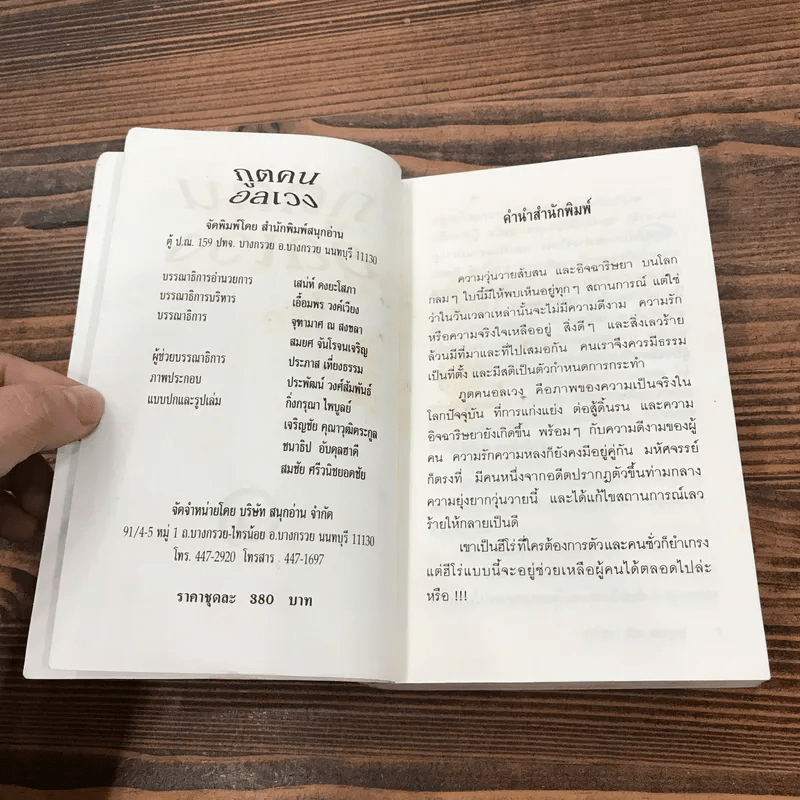 ภูตคน
อลเวง
จัดพิมพ์โดย สำนักพิมพ์สนุกอ่าน
ตู้ ป.ณ. 159 ปทจ. บางกรวย อ.บางกรวย นนทบุรี 11130
บรรณาธิการอำนวยการ เสน่ห์ ดงยะโสภา
บรรณาธิการบริหาร เอื้อมพร วงค์เวียง
บรรณาธิการ จุฑามาศ ณ สงขลา
สมยศ จันโรจนเจริญ
ผู้ช่วยบรรณาธิการ ประภาส เที่ยงธรรม
ภาพประกอบ ประพัฒน์ วงศ์สัมพันธ์
แบบปกและรูปเล่ม กิ่งกรุณา ไพบูลย์
เจริญชัย คุณาวุฒิตระกูล
ชนาธิป อับดุลฮาดี
สมชัย ศรีวนิชยอดชัย
จัดจำหน่ายโดย บริษัท สนุกอ่าน จำกัด
91/4-5 หมู่ 1 ถ.บางกรวย-ไทรน้อย อ.บางกรวย นนทบุรี 11130
โทร. 447-2920 โทรสาร 447-1697
ราคาชุดละ 380 บาท
คำนำสำนักพิมพ์
ความวุ่นวายสับสน และอิจฉาริษยา บนโลก
กลมๆ ใบนี้มีให้พบเห็นอยู่ทุกๆ สถานการณ์ แต่ใช่
ว่าในวันเวลาเหล่านั้นจะไม่มีความดีงาม ความรัก
หรือความจริงใจเหลืออยู่ สิ่งดีๆ และสิ่งเลวร้าย
ล้วนมีที่มาและที่ไปเสมอกัน คนเราจึงควรมีธรรม
เป็นที่ตั้ง และมีสติเป็นตัวกำหนดการกระทำ
ภูตคนอลเวง คือภาพของความเป็นจริงใน
โลกปัจจุบัน ที่การแก่งแย่ง ต่อสู้ดิ้นรน และความ
อิจฉาริษยายังเกิดขึ้น พร้อมๆ กับความดีงามของผู้
คน ความรักความหลงก็ยังคงมีอยู่คู่กัน มหัศจรรย์
ก็ตรงที่ มีคนหนึ่งจากอดีตปรากฏตัวขึ้นท่ามกลาง
ความยุ่งยากวุ่นวายนี้ และได้แก้ไขสถานการณ์เลว
ร้ายให้กลายเป็นดี
เขาเป็นฮีโร่ที่ใครต้องการตัวและคนชั่วก็ยำเกรง
แต่ฮีโร่แบบนี้จะอยู่ช่วยเหลือผู้คนได้ตลอดไปล่ะ
หรือ !!!